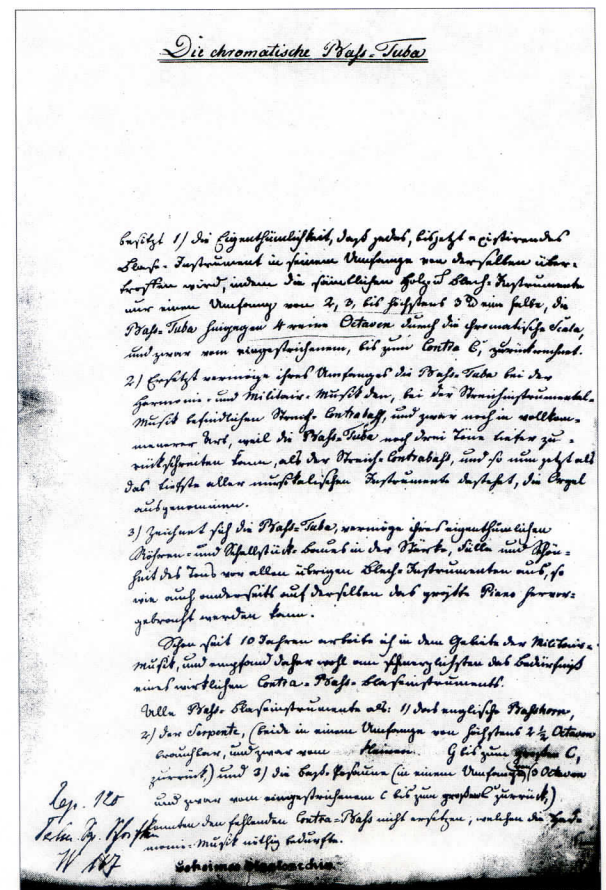 Die chromatische Baß-Tuba
besitzt 1) die Eigenthümlichkeit, daß jedes, bisjetzt existirendes
Blase-Instrument in seinem Umfange von derselben über-
troffen wird, indem die sämtlichen Holz u Blech-Instrumente
nur einen Umfang von 2, 3, bis höchstens 3 eine halbe, die
Baß-Tuba hingegen 4 reine Octaven durch die chromatische Scala,
und zwar vom eingestrichenem, bis zum Contra C, zurückrechnet.
2.) Ersetzt vermöge ihres Umfanges die Baß-Tuba bei der
Harmonie- und Militair-Musik den, bei der Streichinstrumental-
Musik befindlichen Streich-Contrabaß, und zwar noch in vollkom-
menerer Art, weil die Baß-Tuba noch drei Töne tiefer zu-
rückschreiten kann, als der Streich-Contrabaß, und so nun jetzt als
das tiefste aller musikalischen Instrumente dastehet, die Orgel
ausgenommen.
3) Zeichnet sich die Baß-Tuba, vermöge ihres eigenthümlichen
Röhren- und Schallstück-Baues in der Stärke, Fülle und Schön-
heit des Tons vor allen übrigen Blech-Instrumenten aus, so
wie auch anderseits auf derselben das größte Piano hervor-
gebracht werden kann.
Schon seit 10 Jahren arbeite ich in dem Gebiete der Militair-
Musik, und empfand daher wohl am schmerzlichsten das Bedürfniß
eines wirklichen Contra-Baß-Blaseinstruments.
Alle Baß-Blaseinstrumente als: 1) das englische Baßhorn,
2.) der Serpente, (beide in einem Umfange von höchstens 2 ½ Octaven
brauchbar, und zwar vom kleinen G bis zum großen C,
zurück) und 3) die Baß-Posaune (in einem Umfang 3 Octaven
und zwar vom eingestrichenem C bis zum großen C zurück,)
konnten den fehlenden Contra-Baß nicht ersetzen, welchen die Har-
monie-Musik nöthig bedurfte.
Rep. 120
W 187
Geheimes Staatsarchiv